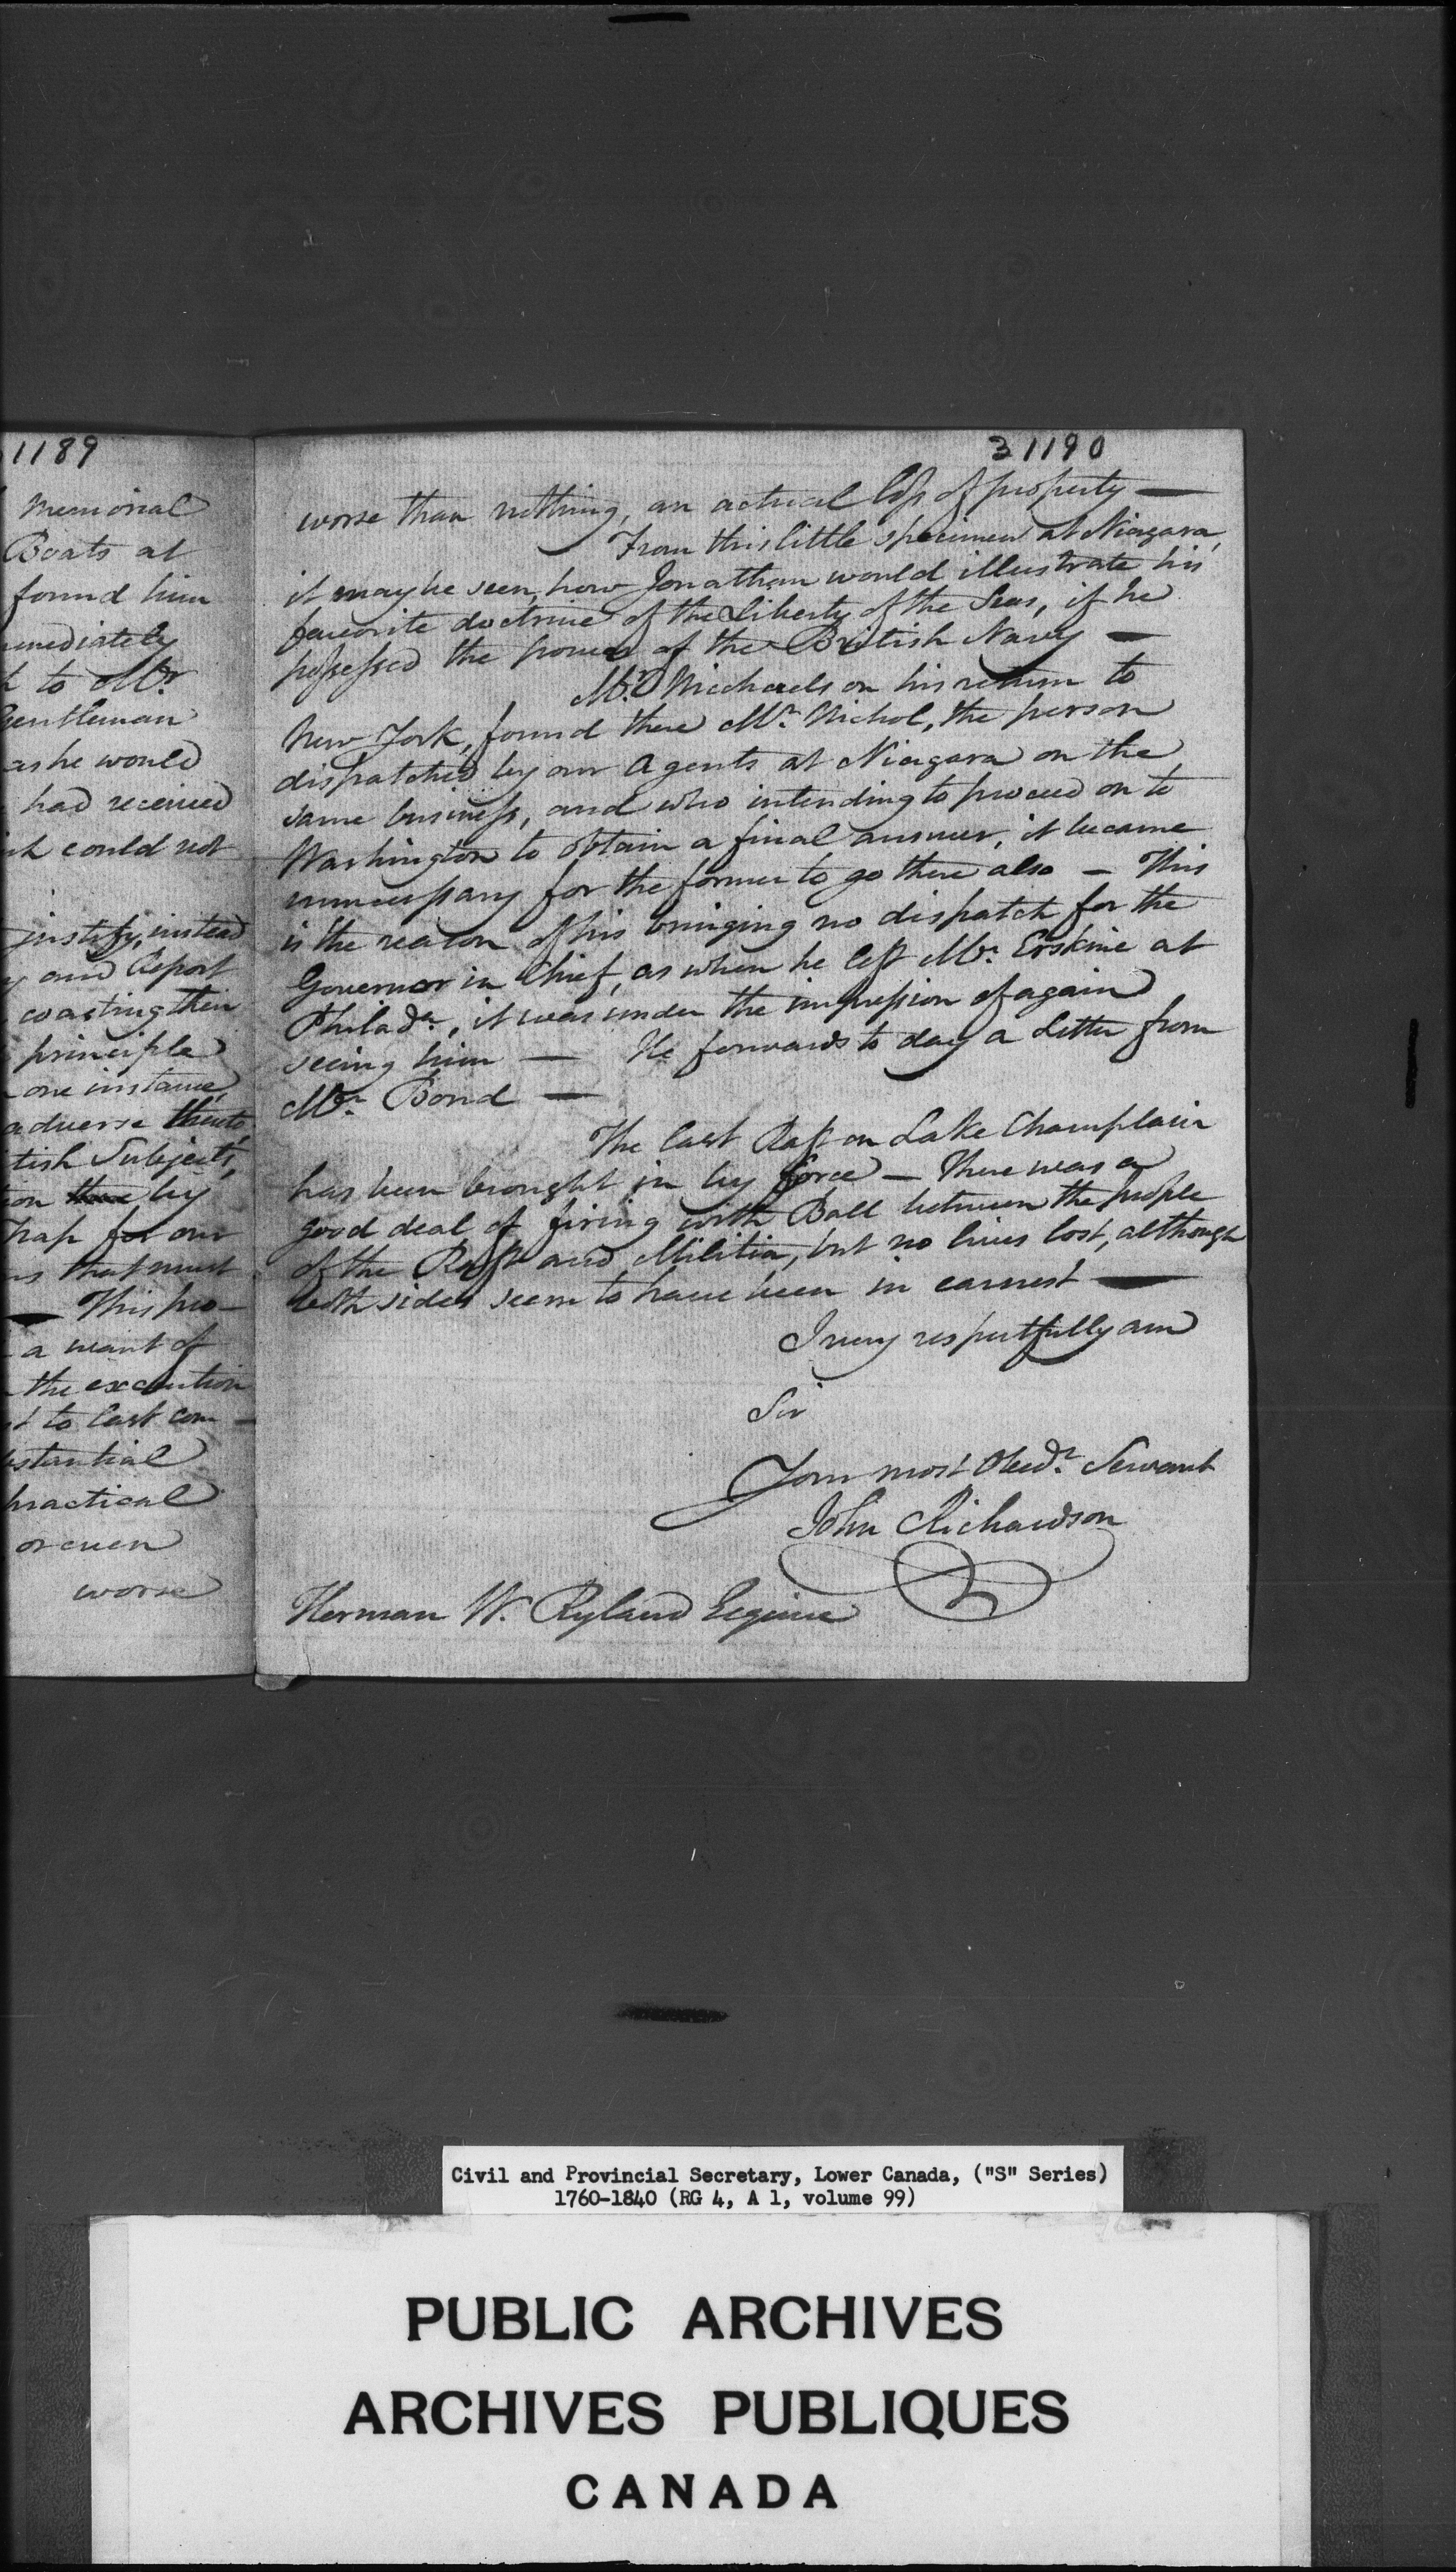 1189
Memorial
Boats at
found him
mediately
to Mr.
Gentleman
as he would
had received
could not
justify, instead
and Report
coasting their
principle
one instance,
adverse thereto
tish Subjects,
by
trap for our
that must
— This pro-
a want of
the execution
to last com-
bstantial
practical
or even
worse
31190
worse than nothing, an actual loss of property —
From this little specimen at Niagara,
it may be seen, how Jonathan would illustrate his
favorite doctrine of the Liberty of the Seas, if he
possessed the power of the British Navy —
Mr. Michaels on his return to
New York, found there Mr. Nichol, the person
dispatched by our Agents at Niagara on the
same business, and who intending to proceed on to
Washington to obtain a final answer, it became
unnecessary for the former to go there also — This
is the reason of his bringing no dispatch for the
Governor in Chief, as when he left Mr. Erskine at
Philada., it was under the impression of again
seeing him — He forwards to day a Letter from
Mr. Bond —
The last Raft on Lake Champlain
has been brought in by force — There was a
good deal of firing with Ball between the people
of the Raft and Militia, but no lives lost, although
both sides seem to have been in earnest —
I very respectfully am
Sir
Your most Obedt. Servant
John Richardson
Herman W. Ryland Esquire
Civil and Provincial Secretary, Lower Canada, ("S" Series)
1760-1840 (RG 4, A 1, volume 99)
PUBLIC ARCHIVES
ARCHIVES PUBLIQUES
CANADA